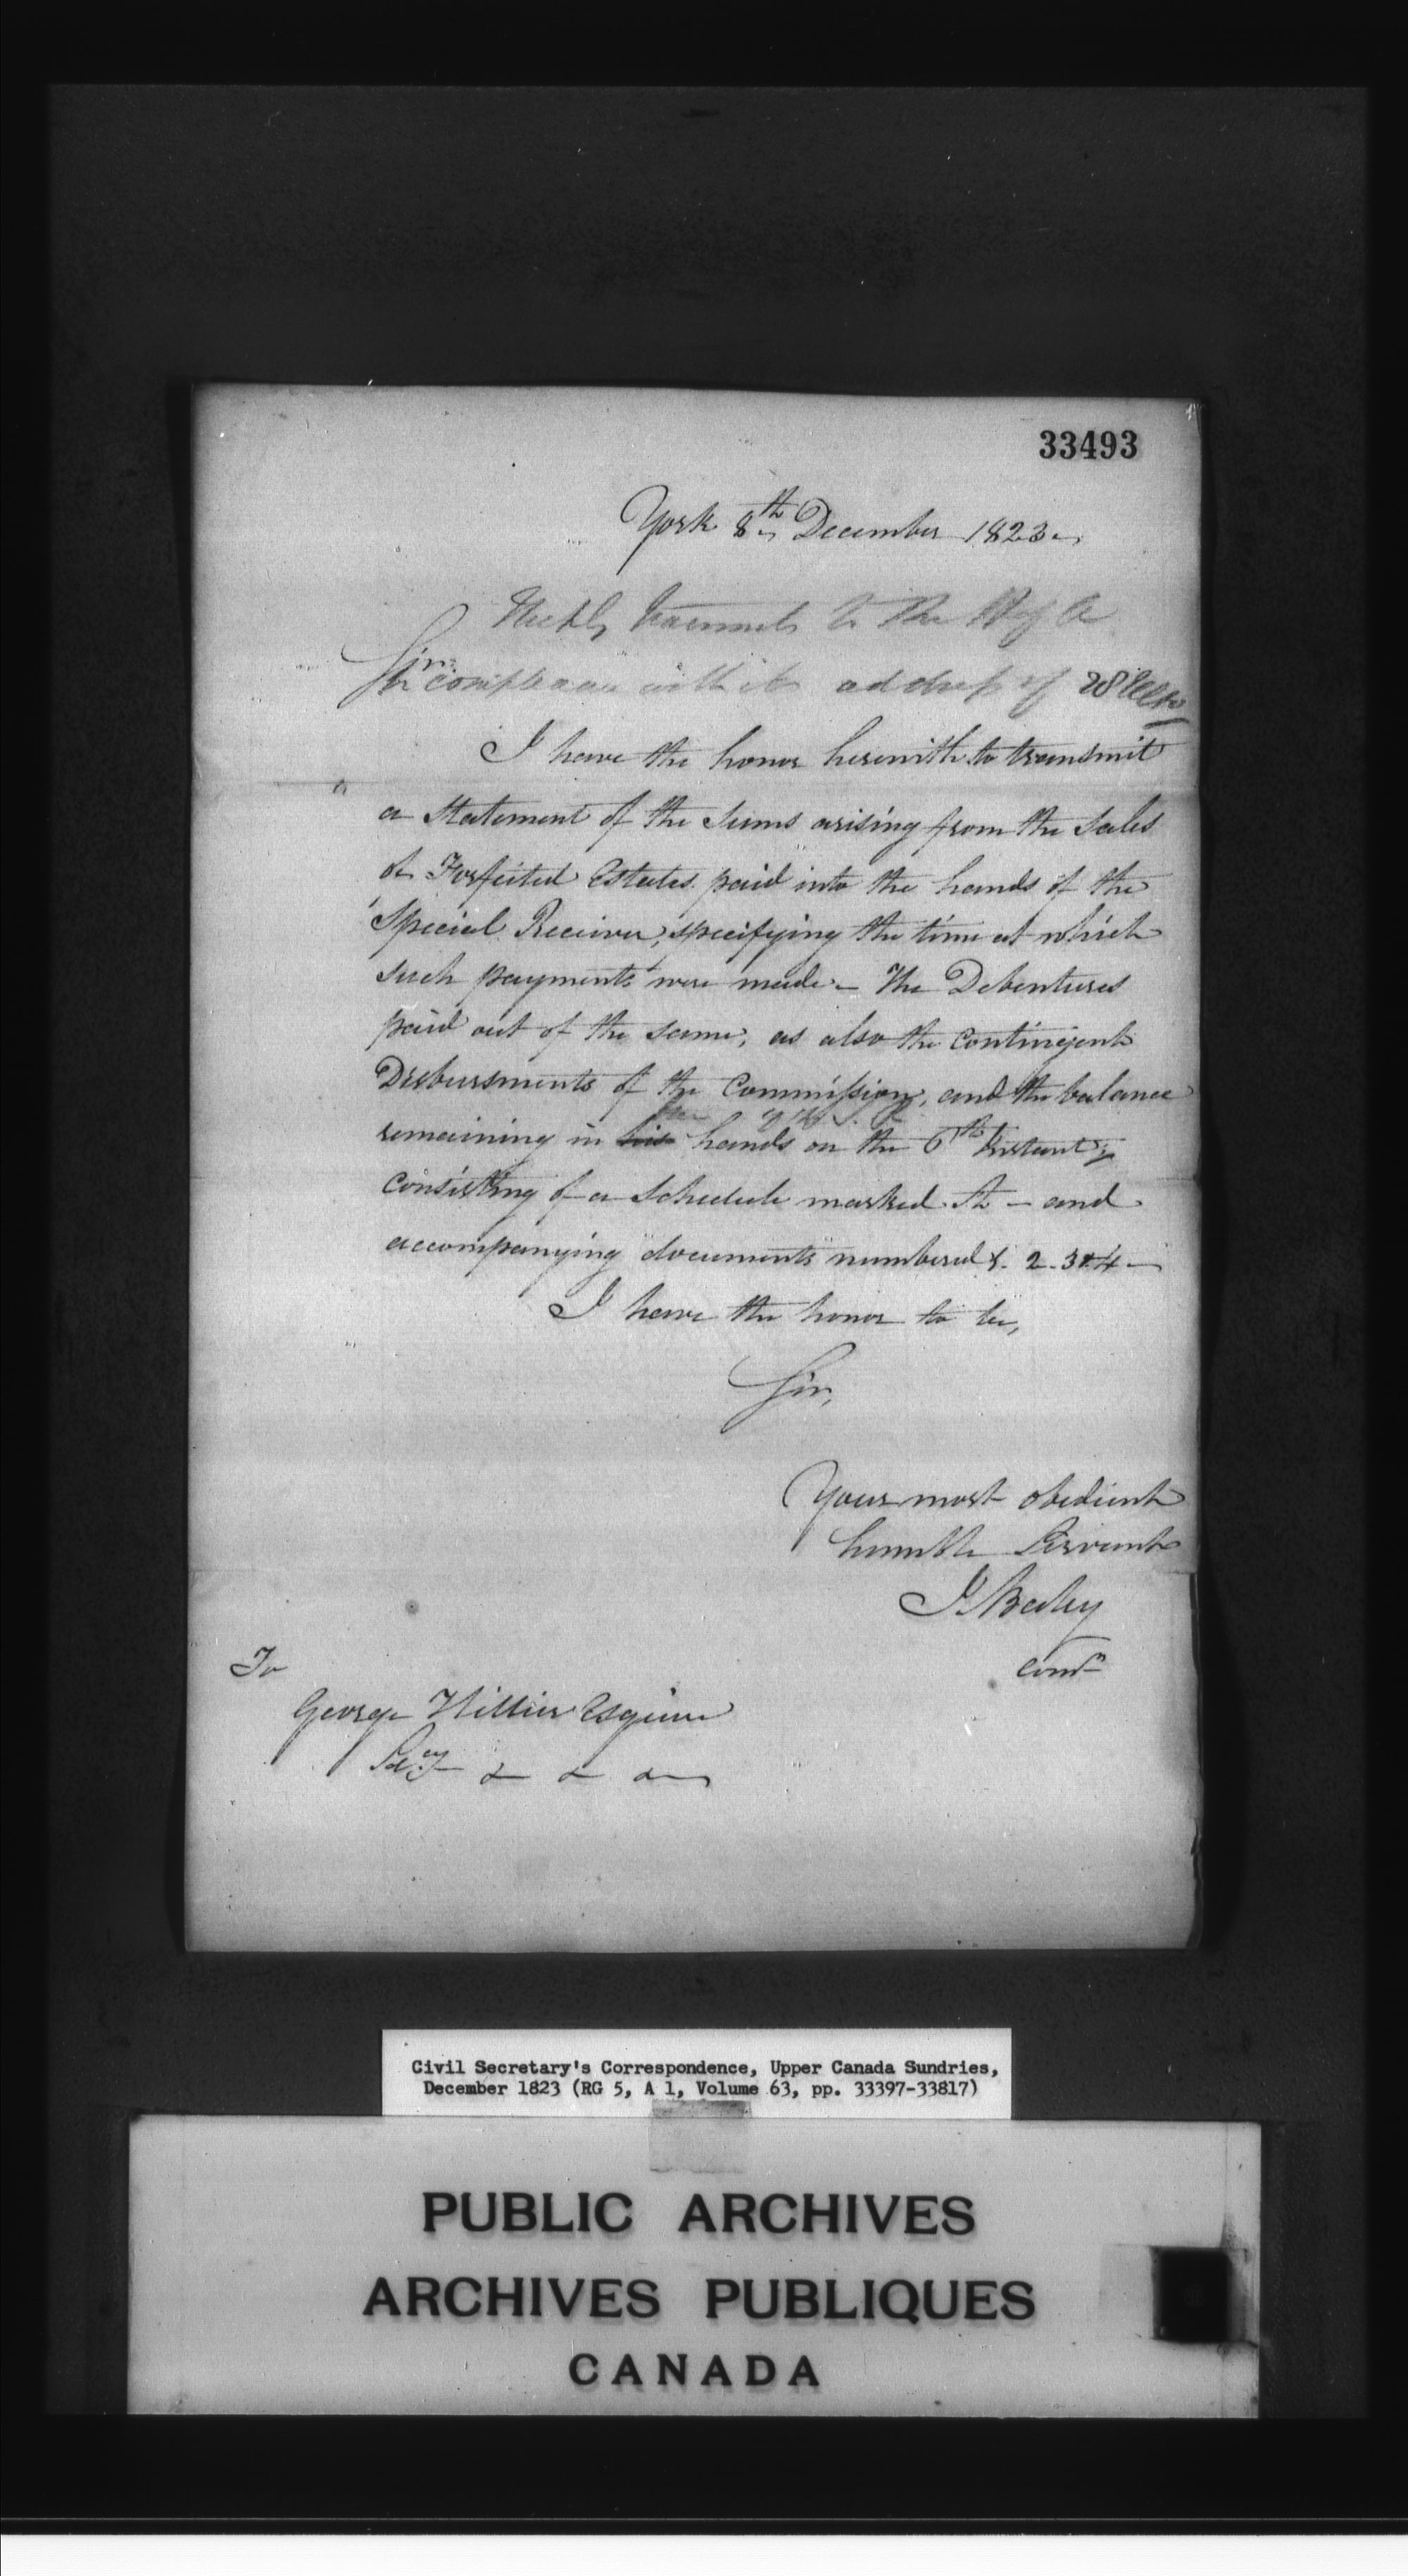 33493
York 8th December 1823
transmits to the H of A
Sir
In compliance with its address of 28
I have the honor herewith to transmit
a Statement of the Sums arising from the Sales
of Forfeited Estates paid into the hands of the
Special Receiver, specifying the time at which
such payments were made – The Debentures
paid out of the same, as also the Contingent
Disbursments of the Commission, and the balance
the of the
remaining in his hands on the 6th Instant;
Consisting of a Schedule marked A – and
accompanying documents numbered 1. 2. 3 & 4 –
I have the honor to be,
Sir,
Your most obedient
humble Servant
J. Baby
To
George Hillier Esquire
Secy & & &
Civil Secretary's Correspondence, Upper Canada Sundries,
December 1823 (RG 5, A 1, Volume 63, pp. 33397-33817)
PUBLIC ARCHIVES
ARCHIVES PUBLIQUES
CANADA